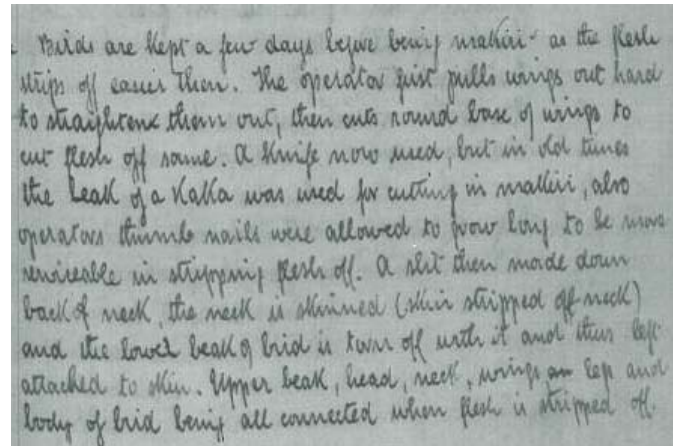 Birds are kept a few days before being makiri - as the flesh
strips off easier then. The operator first pulls wings out hard
to straighten them out, then cuts round base of wings to
cut flesh off same. A knife now used, but in old times
the beak of a Kaka was used for cutting in makiri, also
operators thumb nails were allowed to grow long to be more
serviceable in stripping flesh off. A slit then made down
back of neck, the neck is skinned (skin stripped off neck)
and the lower beak of brid is torn off with it and thus left
attached to skin. Upper beak, head, neck, wings legs and
body of brid being all connected when flesh is stripped off.